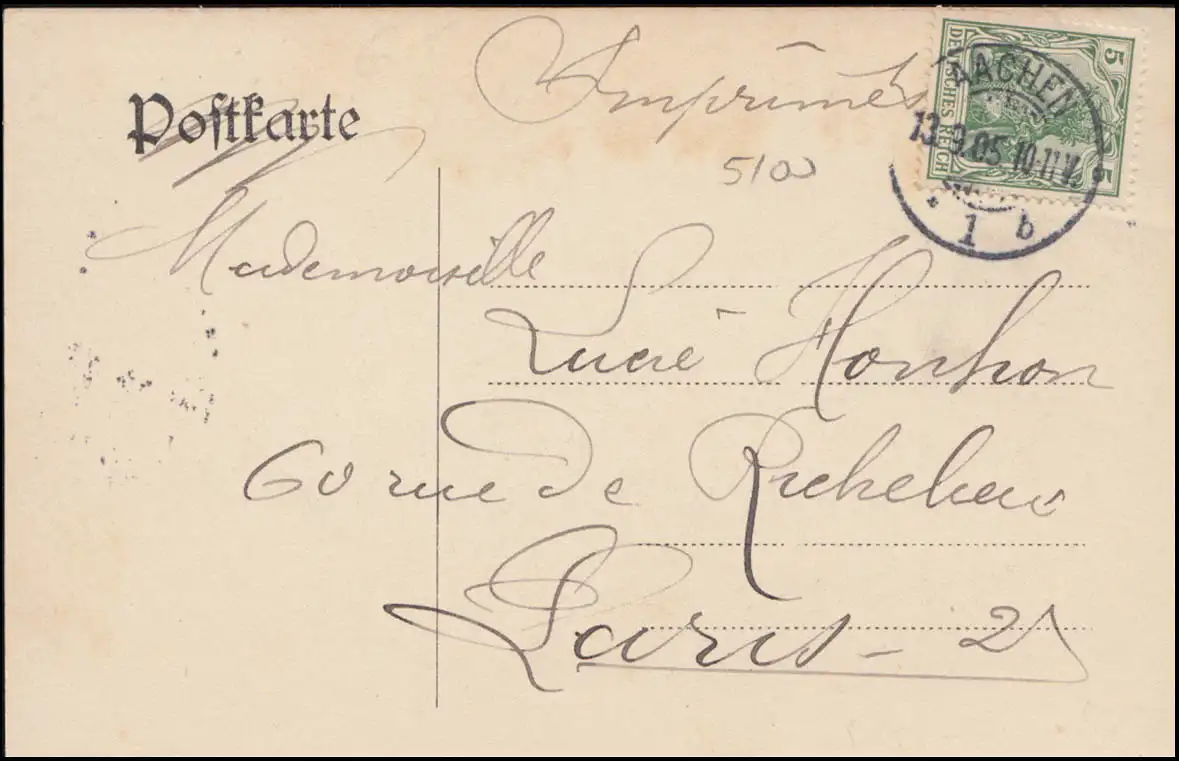 Postkarte
Imprimés
5/00
DEUTSCHES REICH
5
5
AACHEN
13.9.05 10-11V.
* 1 b
Mademoiselle
Lucie Honhon
60 rue de Richelieu
Paris - 2